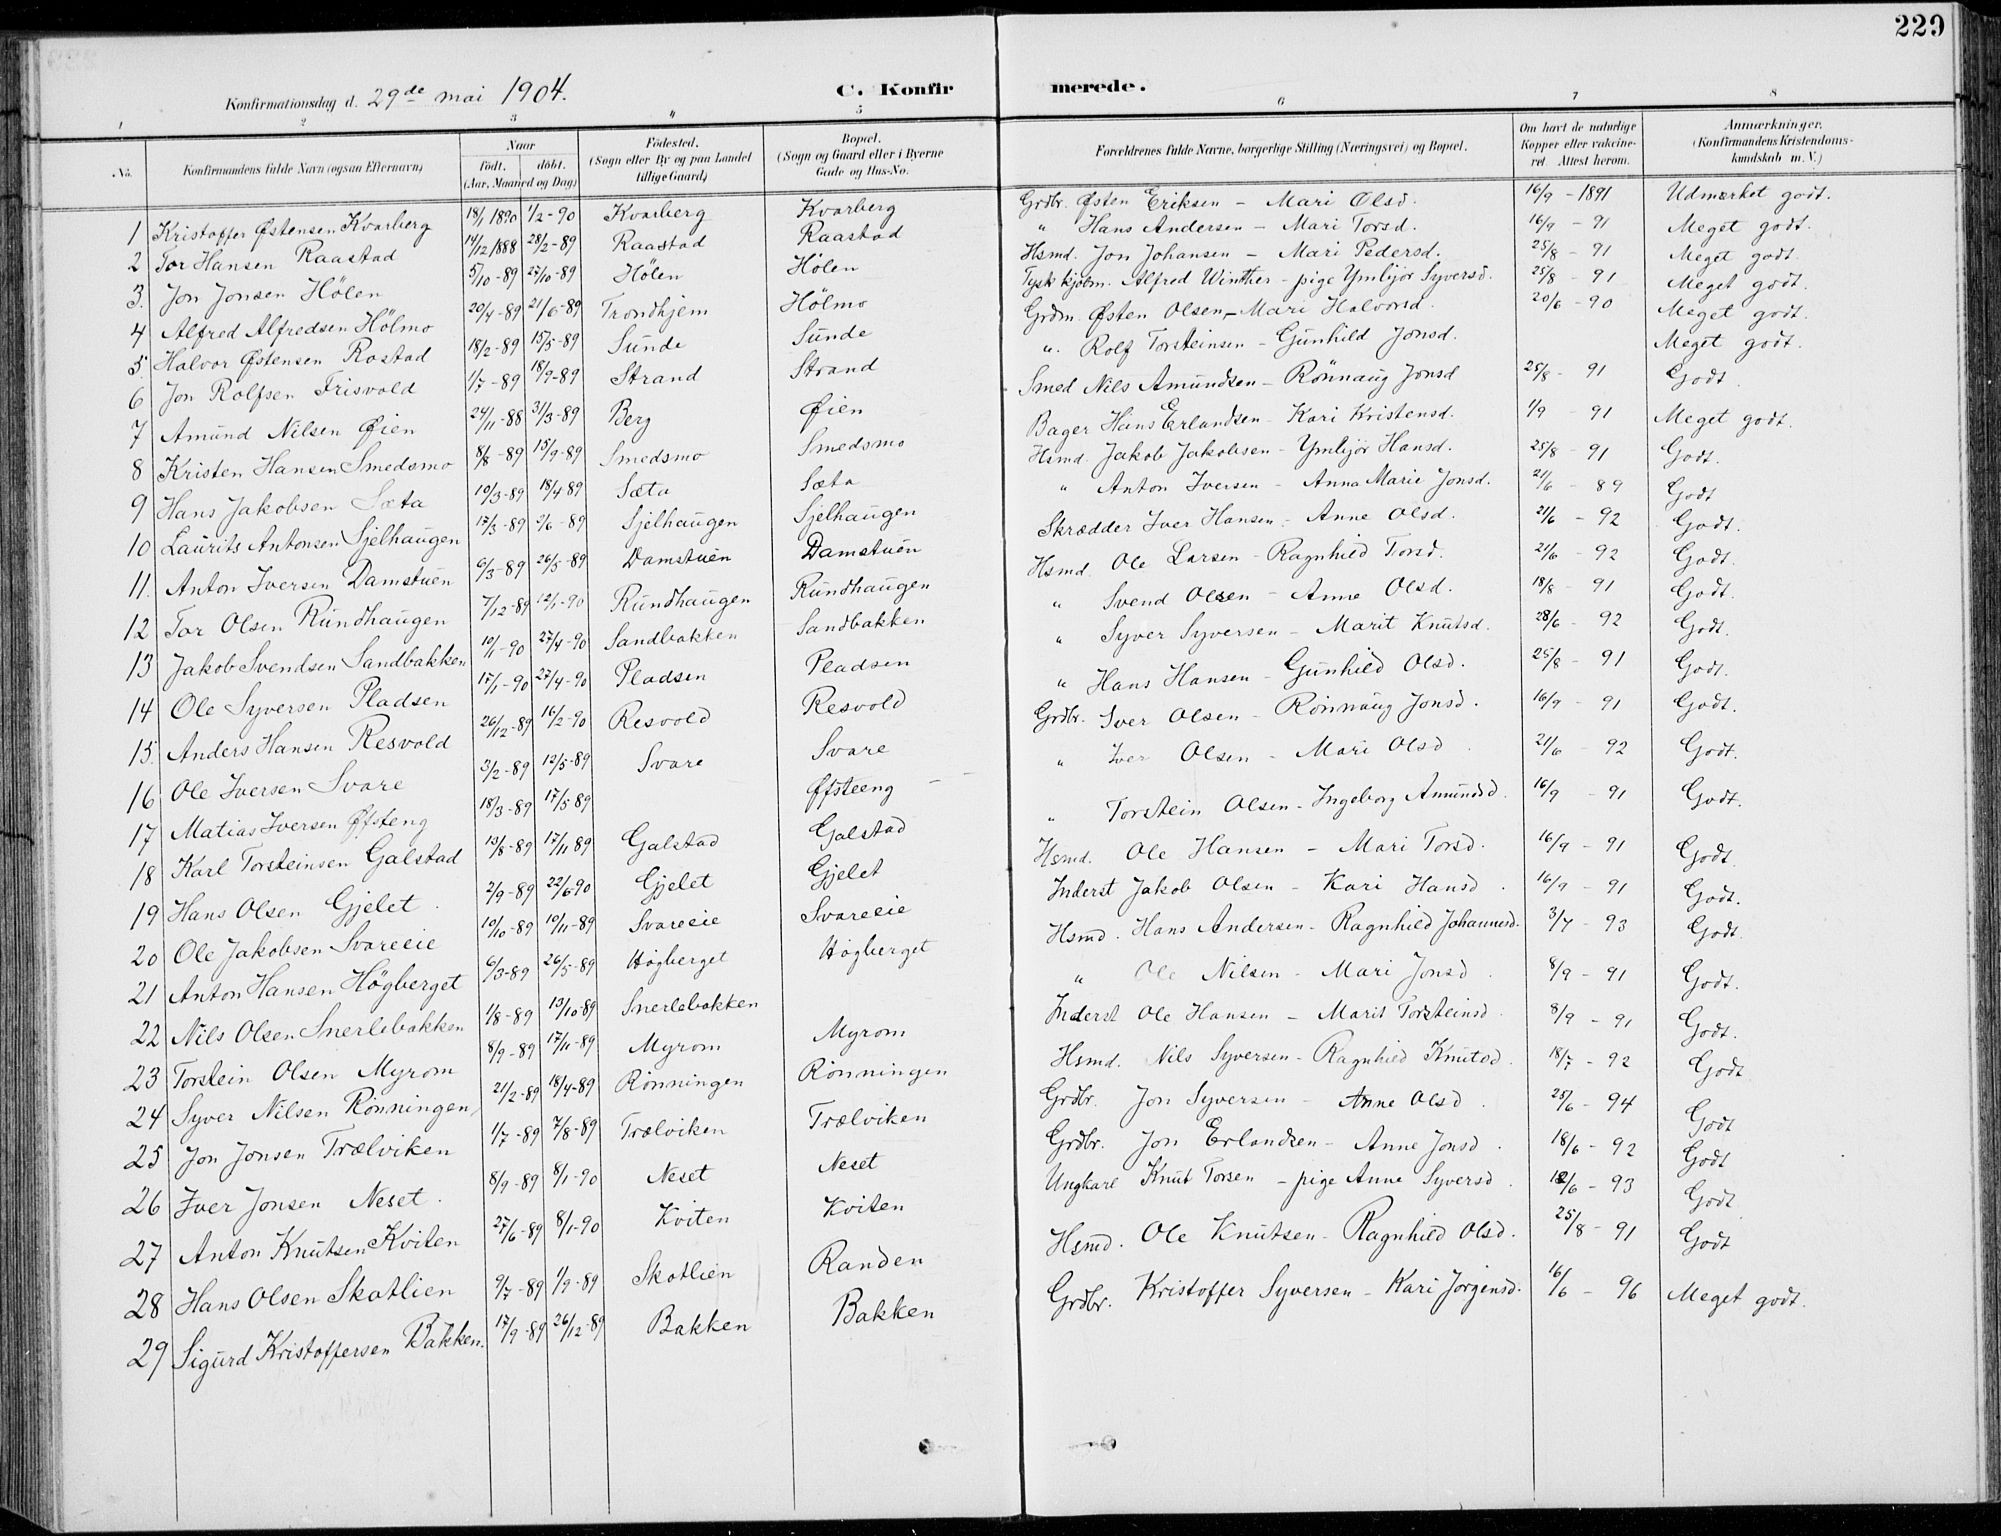 229
Konfirmationsdag d. 29de mai 1904.
C. Konfirmerede.
1 2 3 4 5 6 7 8
No. Konfirmandens fulde Navn (ogsaa Efternavn) Naar Født. døbt. (Aar, Maaned og Dag) Fødested. (Sogn eller By og paa Landet tillige Gaard) Bopæl. (Sogn og Gaard eller i Byerne Gade og Hus-No. Forældrenes fulde Navne, borgerlige Stilling (Næringsvei) og Bopæl. Om havt de naturlige Kopper eller vakcineret. Attest herom. Anmærkninger. (Konfirmandens Kristendomskundskab m. V.)
1 Kristoffer Østensen Kvarberg 18/1 1890 1/2-90 Kvarberg Kvarberg Grdbr. Østen Eriksen - Mari Olsd. 16/9 - 1891 Udmærket godt.
2 Tor Hansen Raastad 14/12 1888 28/2-89 Raastad Raastad " Hans Andersen - Mari Torsd. 16/9 - 91 Meget godt.
3. Jon Jonsen Hölen 5/10-89 27/10-89 Hölen Hölen Hsmd. Jon Johansen - Mari Pedersd. 25/8 - 91 Meget godt.
4 Alfred Alfredsen Hölmo 20/4-89 21/6-89 Trondhjem Hölmo Alfred Winther - pige Ymbjör Syversd. 25/8 - 91 Meget godt.
5 Halvor Østensen Rostad 18/2-89 15/5-89 Sunde Sunde Grdm. Østen Olsen - Mari Halvorsd. 20/6 - 90 Meget godt.
6 Jon Rolfsen Frisvold 1/7-89 18/9-89 Strand Strand ". Rolf Torsteinsen - Gunhild Jonsd. Meget godt.
7 Amund Nilsen Øien 24/11-88 31/3-89 Berg Øien Smed Nils Amundsen - Rönnaug Jonsd 25/8 - 91 Godt.
8 Kristen Hansen Smedsmo 8/8-89 15/9-89 Smedsmo Smedsmo Bager Hans Erlandsen - Kari Kristensd. 1/9 - 91 Meget godt.
9 Hans Jakobsen Sæta 10/3-89 18/4 89 Sæta Sæta Hsmd. Jakob Jakobsen - Ymbjör Hansd. 25/8 - 91 Godt.
10 Laurits Antonsen Sjelhaugen 17/3-89 9/6-89 Sjelhaugen Sjelhaugen " Anton Iversen - Anna Marie Jonsd. 21/6 - 89 Godt
11. Anton Iversen Damstuen 6/3-89 26/5-89 Damstuen Damstuen Skrædder Iver Hansen - Anne Olsd. 21/6 - 92 Godt.
12 Tor Olsen Rundhaugen 7/12-89 12/1-90 Rundhaugen Rundhaugen Hsmd. Ole Larsen - Ragnhild Torsd. 21/6 - 92 Godt.
13 Jakob Svendsen Sandbakken 10/1-90 27/4-90 Sandbakken Sandbakken " Svend Olsen - Anne Olsd. 18/8 - 91 Godt.
14 Ole Syversen Pladsen 17/1-90 27/4-90 Pladsen Pladsen " Syver Syversen - Marit Knutsd. 28/6 - 92 Godt.
15. Anders Hansen Resvold 26/12-89 16/2-90 Resvold Resvold " Hans Hansen - Gunhild Olsd. 25/8 - 91 Godt.
16 Ole Iversen Svare 3/2-89 12/5-89 Svare Svare Grdbr. Iver Olsen - Rönnaug Jonsd. 16/9 - 91 Godt.
17 Matias Iversen Øfsteng 18/3-89 17/5 89 Øfsteeng " Iver Olsen - Mari Olsd 21/6 - 92 Godt.
18 Karl Torsteinsen Galstad 13/8-89 17/11 89 Galstad Galstad " Torstein Olsen - Ingeborg Amundsd. 16/9 - 91 Godt.
19 Hans Olsen Gjelet. 2/9-89 22/6 90 Gjelet Gjelet Hsmd. Ole Hansen - Mari Torsd. 16/9 - 91 Godt.
20 Ole Jakobsen Svareeie 10/10-89 10/11-89 Svareeie Svareeie Inderst Jakob Olsen - Kari Hansd. 16/9 - 91 Godt.
21 Anton Hansen Högberget 6/3-89 26/5-89 Högberget Högberget Hsmd. Hans Andersen - Ragnhild Johannesd. 3/7 - 93 Godt.
22 Nils Olsen Snerlebakken 1/8-89 13/10-89 Snerlebakken " Ole Nilsen - Mari Jonsd. 8/9 - 91 Godt.
23 Torstein Olsen Myrom 8/9-89 17/11-89 Myrom Myrom Inderst Ole Hansen - Marit Torsteinsd. 8/9 - 91 Godt.
24 Syver Nilsen Rönningen 21/2-89 18/4-89 Rönningen Rönningen Hsmd. Nils Syversen - Ragnhild Knutsd. 18/7 - 92 Godt
25 Jon Jonsen Trælviken 1/7-89 7/8-89 Trælviken Trælviken Grdbr. Jon Syversen - Anne Olsd. 25/6 - 94 Godt
26 Iver Jonsen Neset. 8/9-89 8/1-90 Neset Neset Grdbr. Jon Erlandsen - Anne Jonsd. 18/6 - 92 Godt
27 Anton Knutsen Kviten 27/6-89 8/1-90 Kviten Kviten Ungkarl Knut Torsen - pige Anne Syversd. 12/6 - 93 Godt
28 Hans Olsen Skotlien 9/7-89 1/9-89 Skotlien Randen Hsmd. Ole Knutsen - Ragnhild Olsd. 25/8 - 91 Godt
29 Sigurd Kristoffersen Bakken. 17/9-89 26/12-89 Bakken Bakken Grdbr. Kristoffer Syversen - Kari Jörgensd. 16/6 - 96 Meget godt.